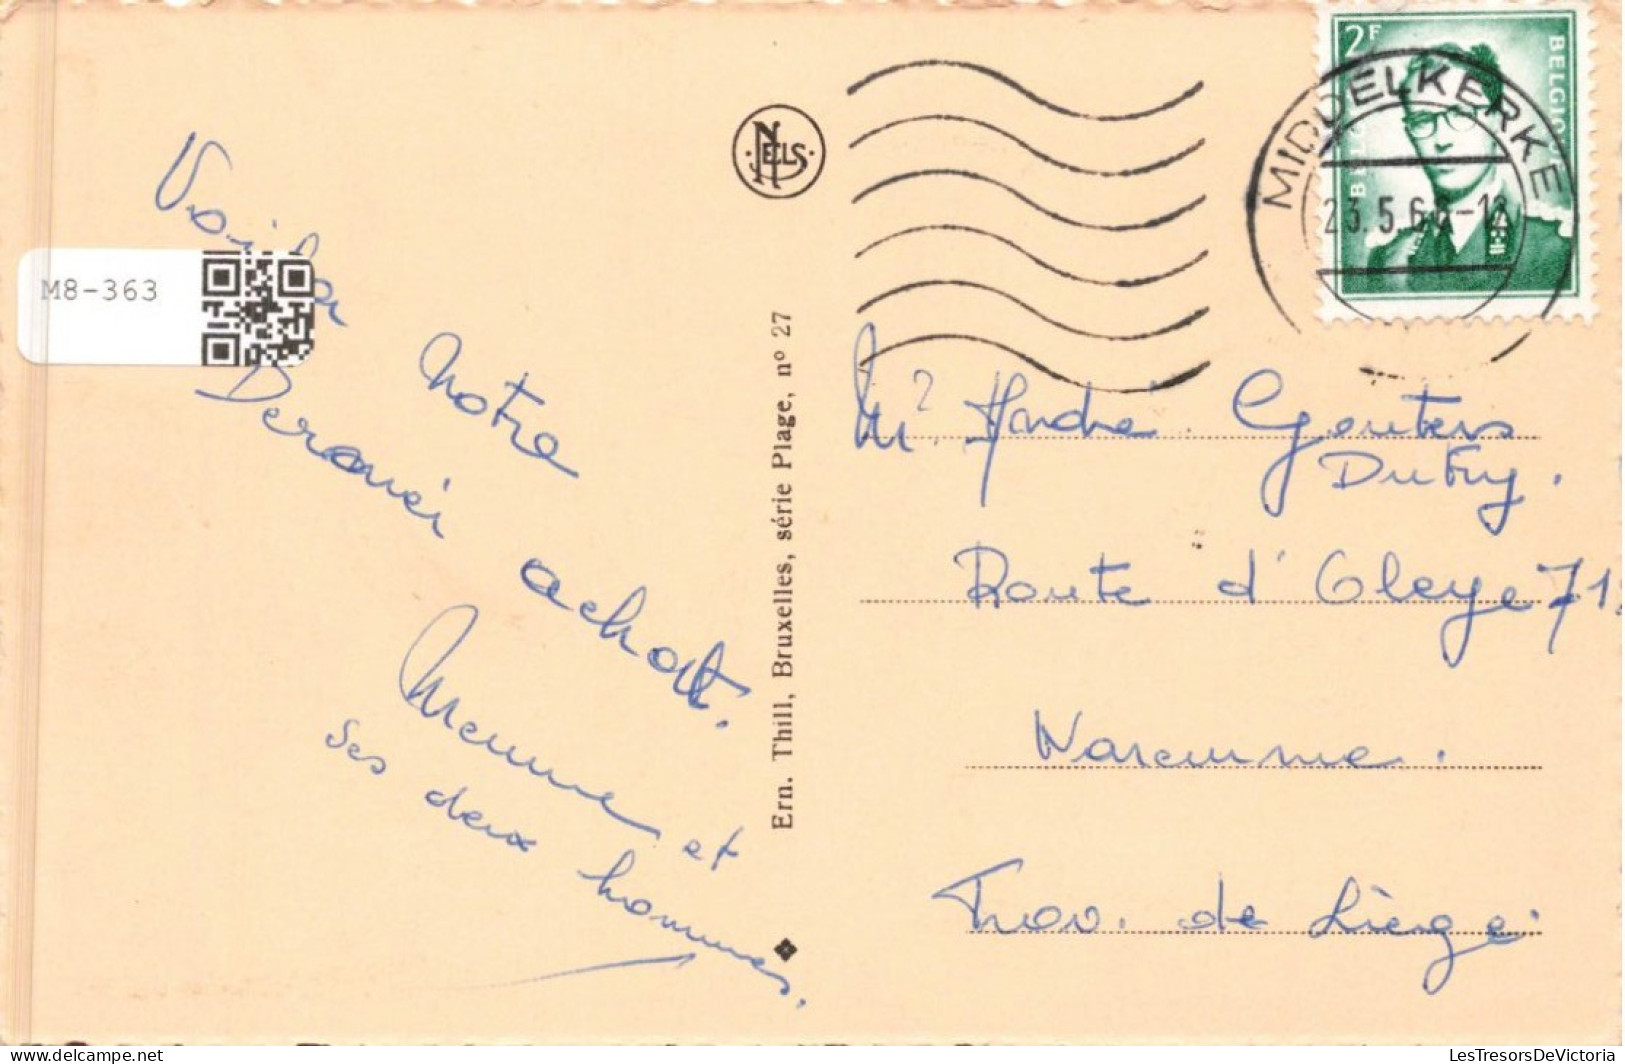 Voilà
Notre
Dernier
achat.
Memme et
ses deux hommes.
M8-363
NELS
Ern. Thill, Bruxelles, série Plage, nº 27
2F
BELGIQUE
BELGIË
MIDDELKERKE
23.5.66-12
Mr André Gouters
Dutry.
Route d'Oleye 71
Waremme.
Prov. de Liège.
LesTresorsDeVictoria